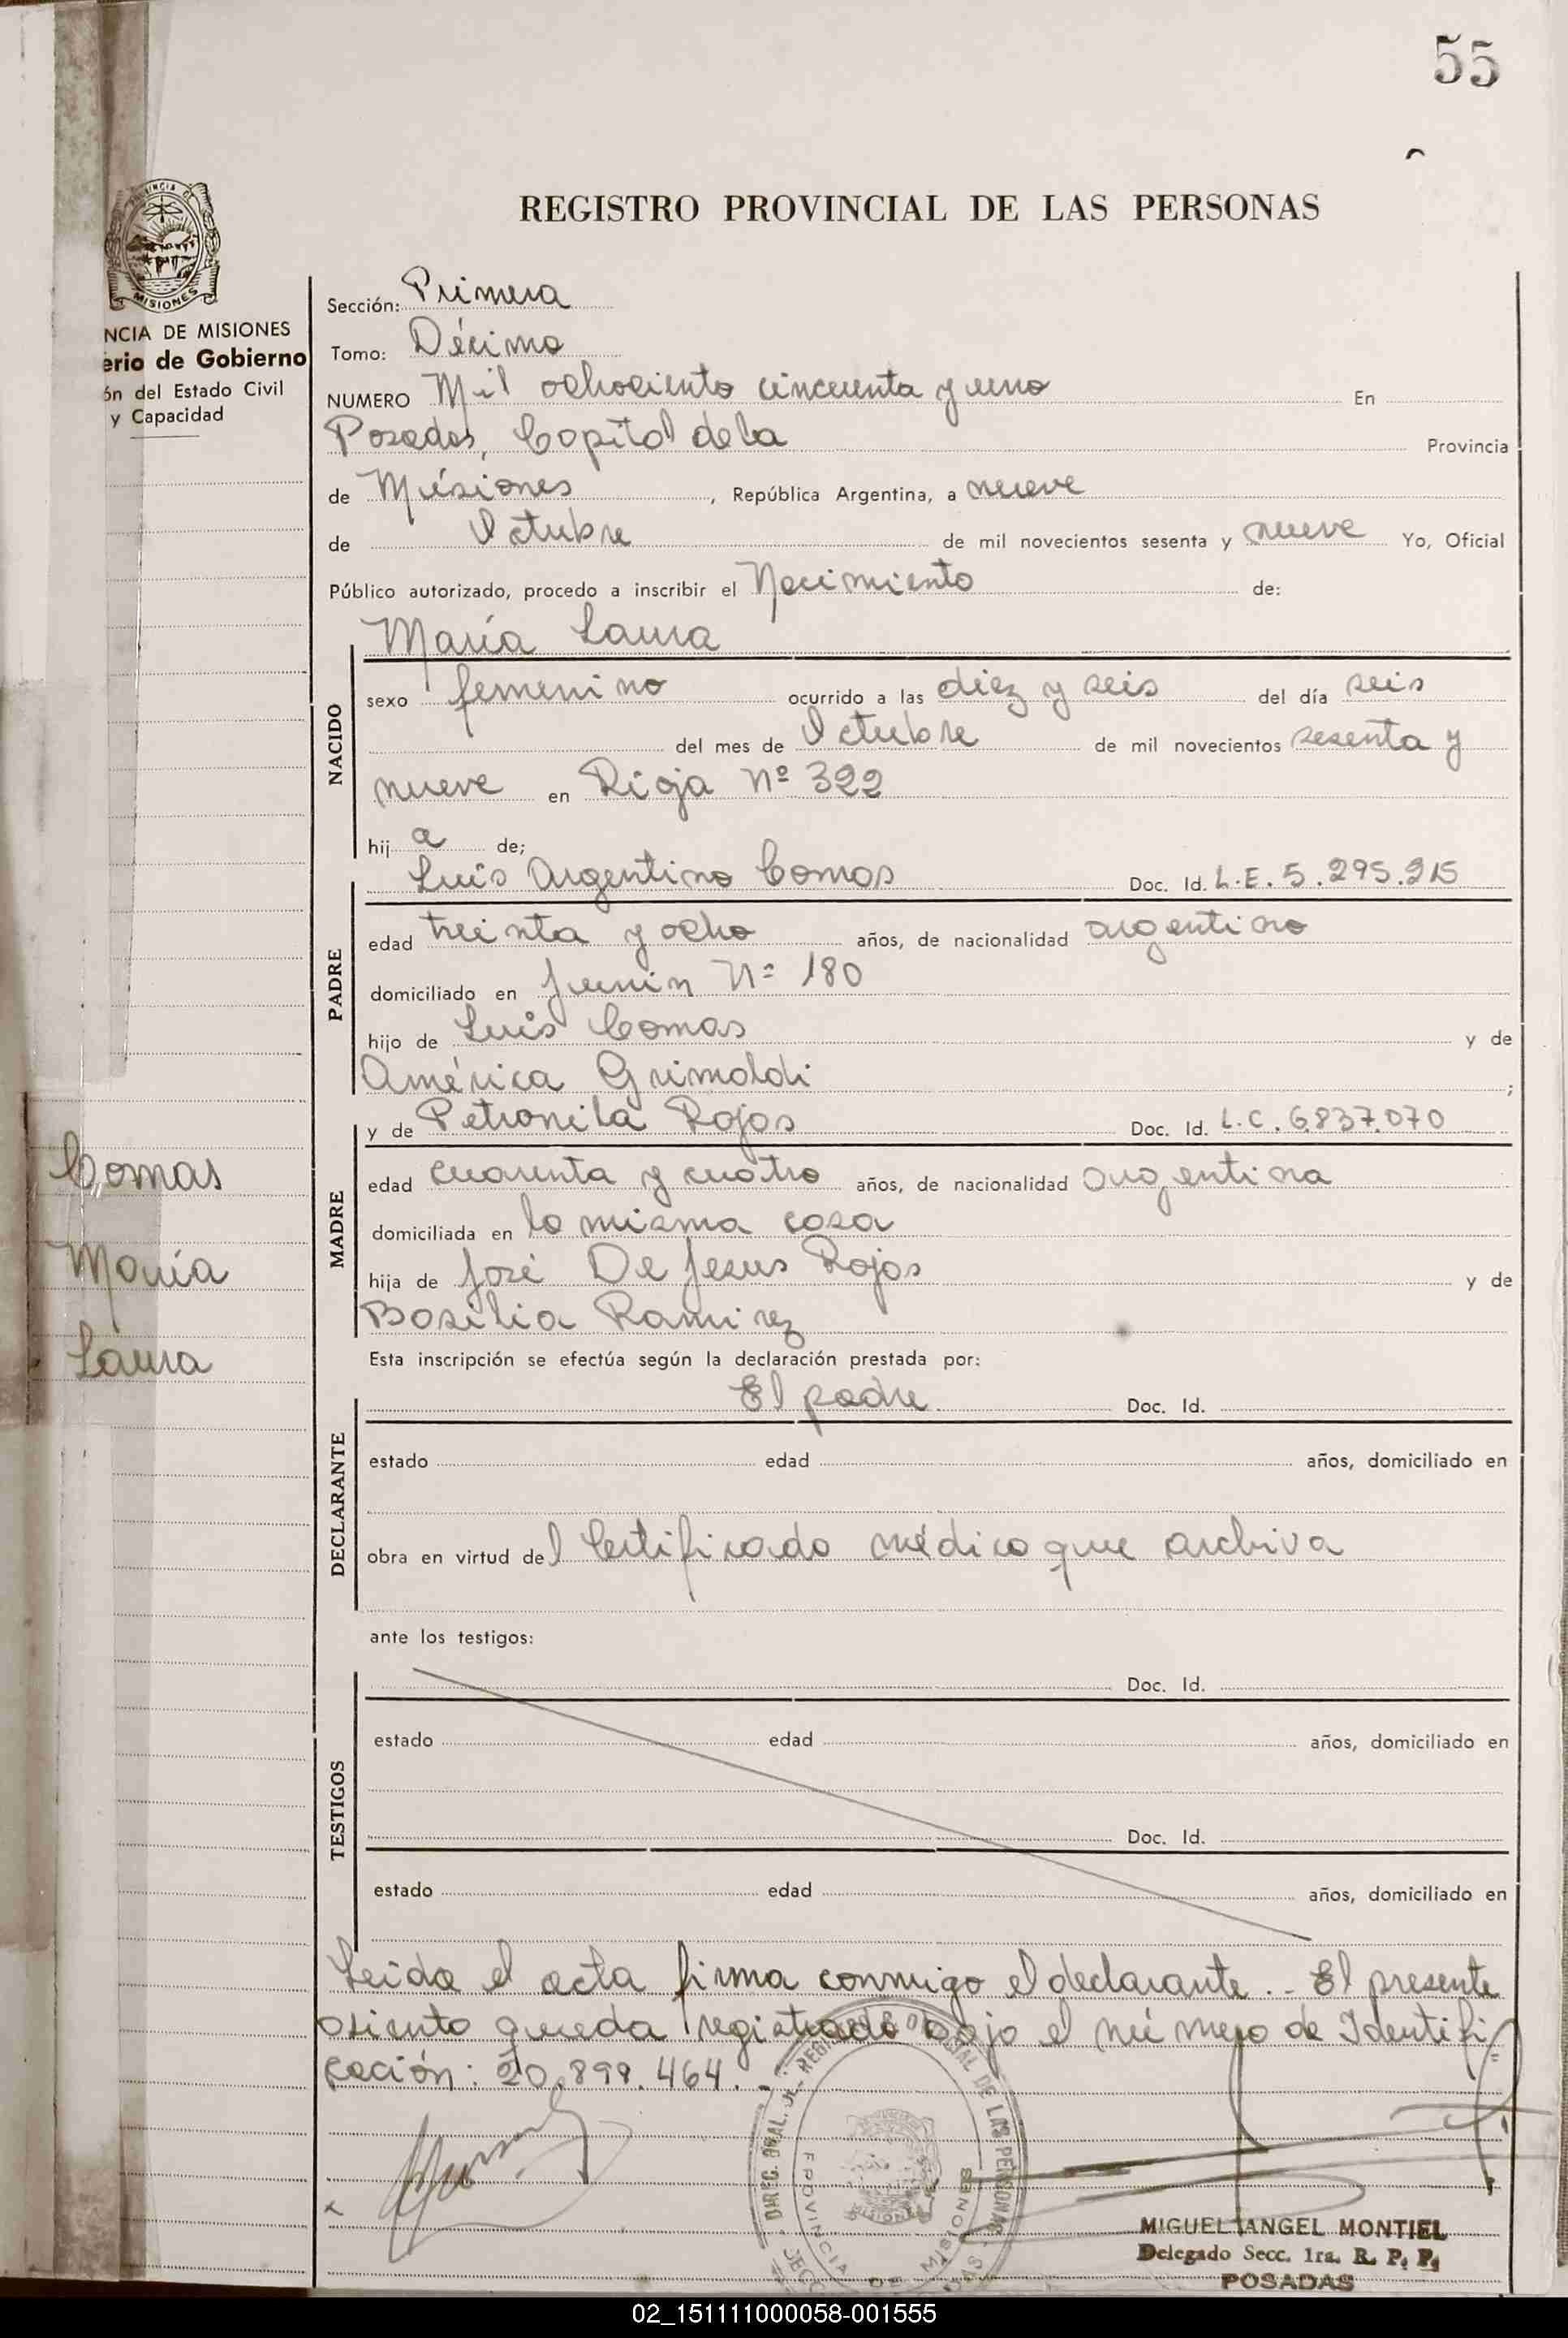 55
REGISTRO PROVINCIAL DE LAS PERSONAS
MISIONES
NCIA DE MISIONES
erio de Gobierno
ón del Estado Civil
y Capacidad
Sección: Primera
Tomo: Décimo
NUMERO Mil ochociento cincuenta y uno En
Posadas, Capital de la Provincia
de Misiones, República Argentina, a nueve
de Octubre de mil novecientos sesenta y nueve Yo, Oficial
Público autorizado, procedo a inscribir el Nacimiento de:
María Laura
NACIDO
sexo femenino ocurrido a las diez y seis del día seis
del mes de Octubre de mil novecientos sesenta y
nueve en Rioja Nº 322
hij a de;
Luis Argentino Comas Doc. Id. L.E. 5.295.215
PADRE
edad treinta y ocho años, de nacionalidad argentino
domiciliado en Junin Nº 180
hijo de Luis Comas y de
América Grimaldi ;
y de Petronila Rojas Doc. Id. L.C. 6.837.070
MADRE
edad cuarenta y cuatro años, de nacionalidad argentina
domiciliada en la misma casa
hija de José De Jesus Rojas y de
Basilia Ramirez
Comas
María
Laura
Esta inscripción se efectúa según la declaración prestada por:
El padre. Doc. Id.
DECLARANTE
estado edad años, domiciliado en
obra en virtud del Certificado médico que archiva
ante los testigos:
TESTIGOS
Doc. Id.
estado edad años, domiciliado en
Doc. Id.
estado edad años, domiciliado en
Leida el acta firma conmigo el declarante.- El presente
asiento queda registrado bajo el número de Identifi
cación: 20.899.464.-
DIREC. GRAL. DEL REGISTRO PROVINCIAL DE LAS PERSONAS
PROVINCIA DE MISIONES
MIGUEL ANGEL MONTIEL
Delegado Secc. 1ra. R. P. P.
POSADAS
02_151111000058-001555